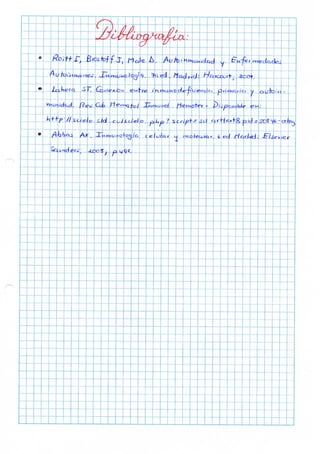 Bibliografía:
• Roitt I, Brostoff J, Male D. Autoinmunidad y Enfermedades
Autoinmunes. Inmunología. Madrid: Harcourt, 
• Lahera ST. Conexión entre inmunodeficiencia primaria y autoin-
munidad. Rev Cub Hematol Inmunol Hemoter. Disponible en:
http://scielo.sld.cu/scielo.php?script=sci_arttext&pid=
• Abbas AK. Inmunología celular y molecular. ed Madrid: Elsevier
Saunders,